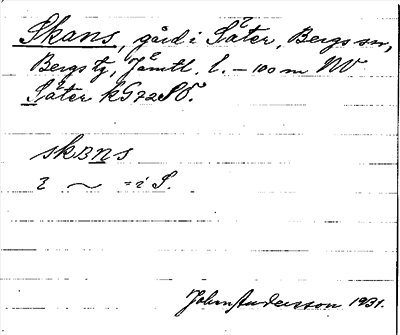 Skans, gård i Såter, Bergs sn,
Bergs tg, Jämtl. l. – 100 m NV
Såter kG72SO.
skans
i ~ = i S.
John Andersson 1931.